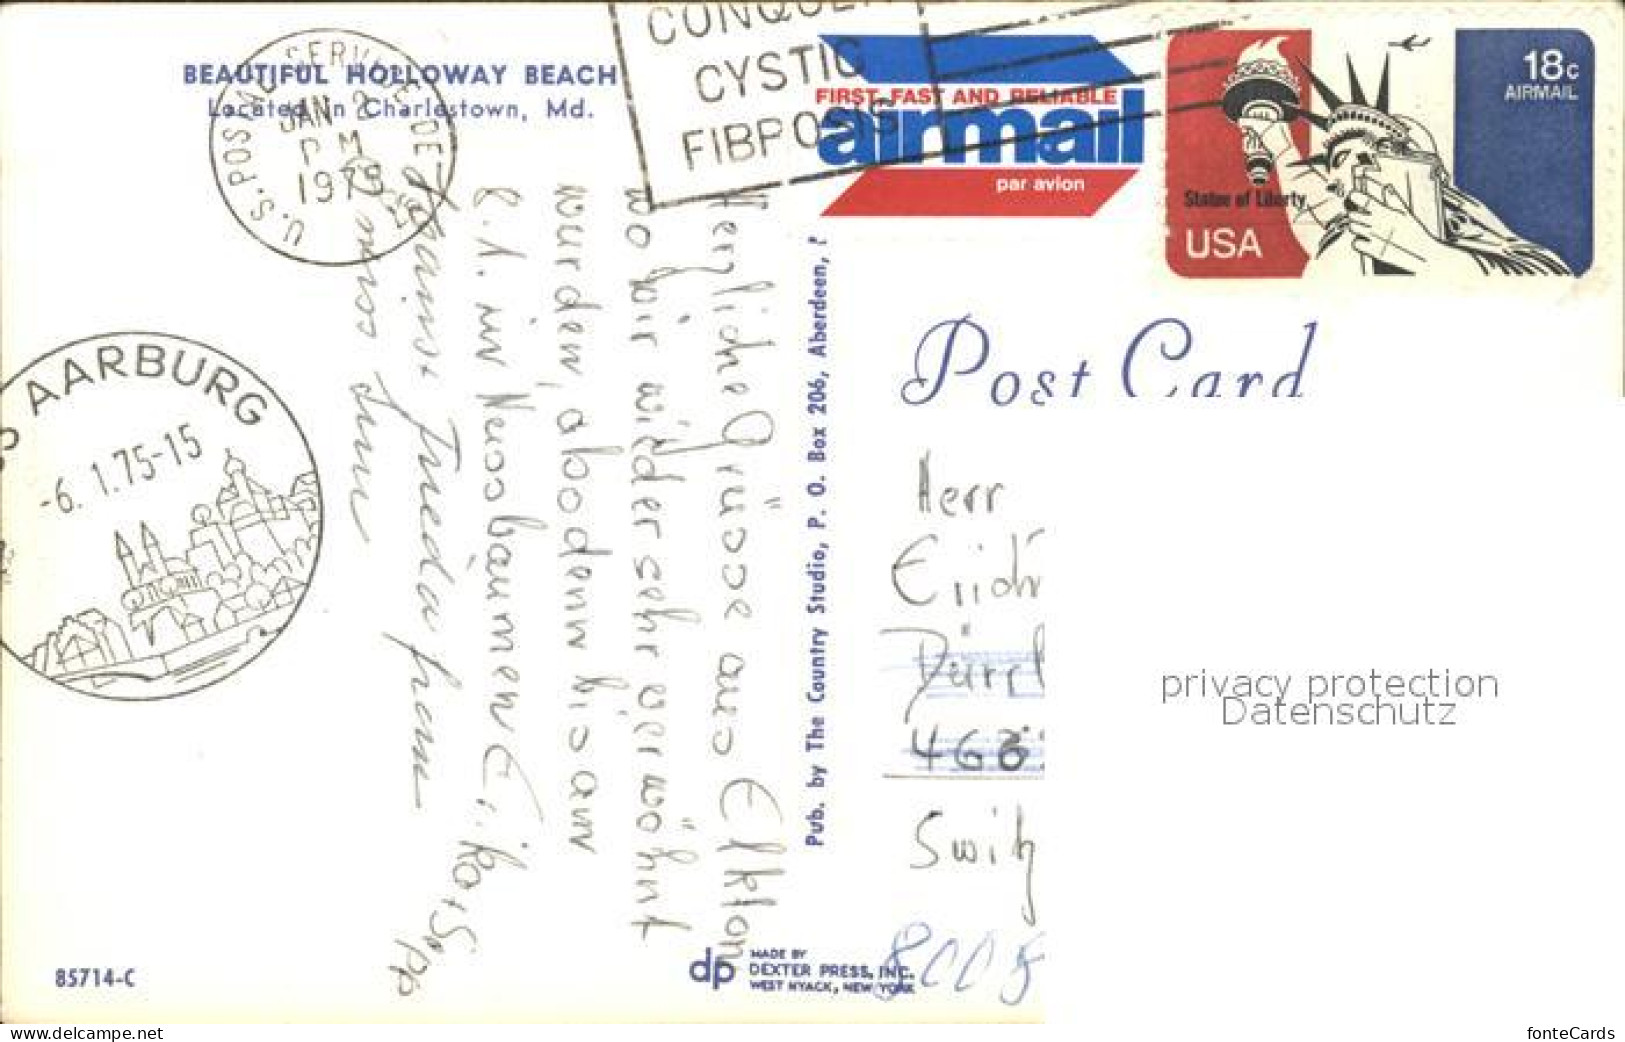 BEAUTIFUL HOLLOWAY BEACH
Located in Charlestown, Md.
U.S. POSTAL SERVICE
JAN 2
PM
1975
CONQUER
CYSTIC
FIBROSIS
FIRST-FAST AND RELIABLE
airmail
par avion
18c
AIRMAIL
Statue of Liberty
USA
AARBURG
-6.1.75-15
Herzliche Grüsse aus Elkton
wo wir wieder sehr verwöhnt
wurden, also denn bis am
8.1. in Nussbaumen
Frieda
Pub. by The Country Studio, P. O. Box 206, Aberdeen,
Post Card
Herr
Erich
Dürr
Switz
8005
privacy protection
Datenschutz
85714-C
dp
MADE BY
DEXTER PRESS, INC.
WEST NYACK, NEW YORK
www.delcampe.net
fonteCards